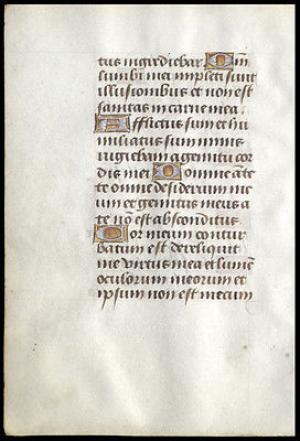 tus ingrediebar Qm̄
lumbi mei impleti sunt
illusionibus et non est
sanitas in carne mea.
Afflictus sum et hu
miliatus sum nimis
rugiebam a gemitu cor
dis mei Domine āte
te omne desiderium me
um et gemitus meus a
te nō est absconditus.
Cor meum contur
batum est dereliquit
me virtus mea et lumē
oculorum meorum et
ipsum non est mecum